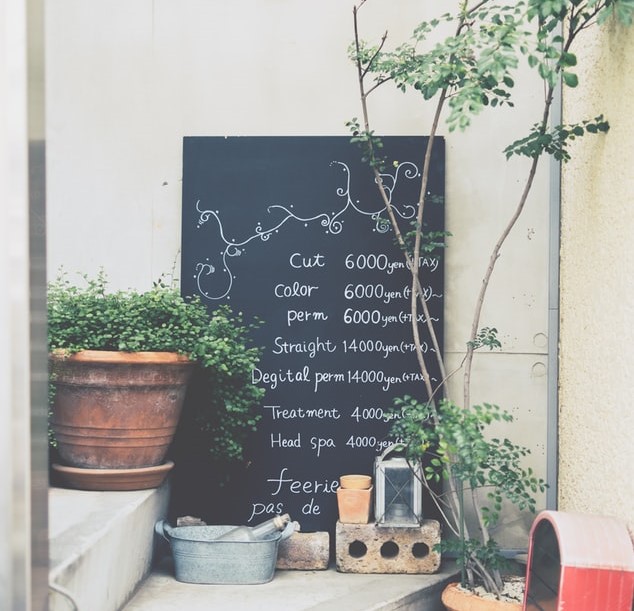 Cut 6000yen(+TAX)
Color 6000yen(+TAX)~
perm 6000yen(+TAX)~
Straight 14000yen(+TAX)~
Degital perm 14000yen(+TAX)~
Treatment 4000yen
Head spa 4000yen
feerie
pas de